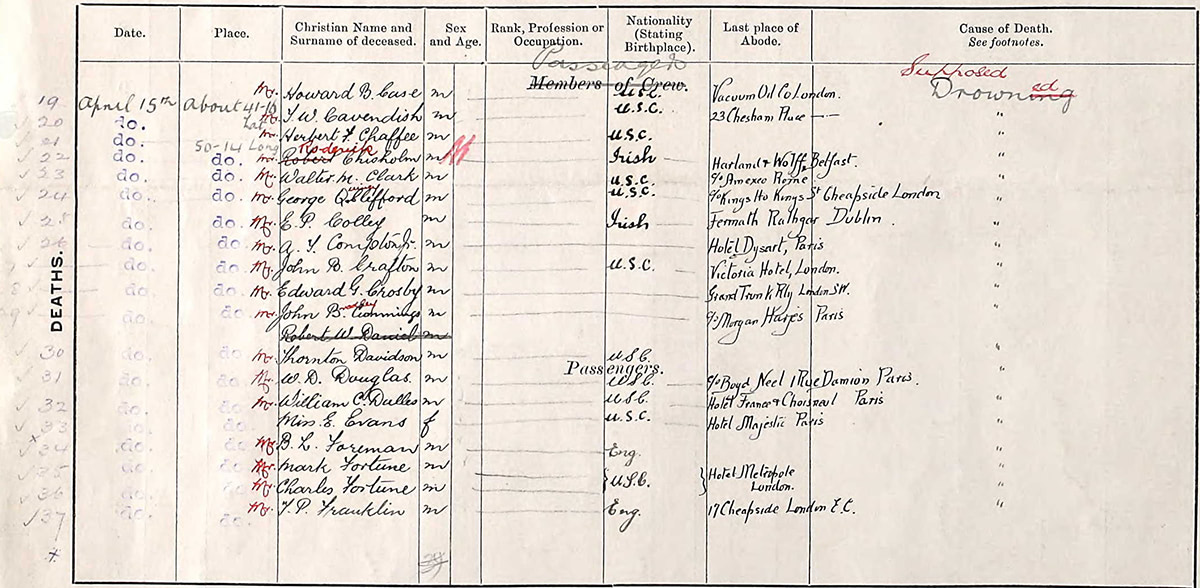 Date. Place. Christian Name and Surname of deceased. Sex and Age. Rank, Profession or Occupation. Nationality (Stating Birthplace). Last place of Abode. Cause of Death. See footnotes.
DEATHS.
Passenger
Members of Crew.
Supposed
Drowning ed
19 April 15th About 41-16 Mr. Howard B. Case m U.S.C. Vacuum Oil Co London.
20 do. Lat Mr. T. W. Cavendish m U.S.C. 23 Chesham Place "
21 do. 50-14 Long Mr. Herbert F. Chaffee m U.S.C. "
22 do. do. Mr. Robert Roderick Chisholm m Irish Harland & Wolff, Belfast. "
23 do. do. Mr. Walter M. Clark m U.S.C. c/o Amexco Rome "
24 do. do. Mr. George Q. Clifford m U.S.C. c/o Kings Ho Kings St Cheapside London "
25 do. do. Mr. E. P. Colley m Irish Rathgar Dublin. "
26 do. do. Mr. A. T. Compton Jr. m Hotel Dysart, Paris "
do. do. Mr. John B. Crafton m U.S.C. Victoria Hotel, London. "
do. do. Mr. Edward G. Crosby m Grand Trunk Rly London SW. "
do. do. Mr. John B. Cummings m c/o Morgan Harjes Paris "
Robert W. Daniel m
30 do. do Mr. Thornton Davidson m U.S.C. "
Passengers.
31 do. do Mr. W. D. Douglas. m U.S.C. c/o Boyd Neel 1 Rue Damion Paris. "
32 do. do Mr. William C. Dulles m U.S.C. Hotel France & Choiseul Paris "
33 do. do Miss E. Evans f U.S.C. Hotel Majestic Paris "
34 do. do Mr. B. L. Foreman m Eng. "
35 do. do Mr. Mark Fortune m U.S.C. Hotel Metropole London. "
36 do. do. Mr. Charles Fortune m "
37 do. do. Mr. T. P. Franklin m Eng. 17 Cheapside London E.C. "